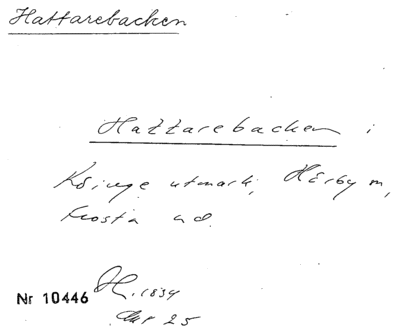 Hattarebacken
Hattarebacken i
Köinge utmark, Hörby sn,
Frosta hd.
Nr 10446 H. 1834
Akt 25